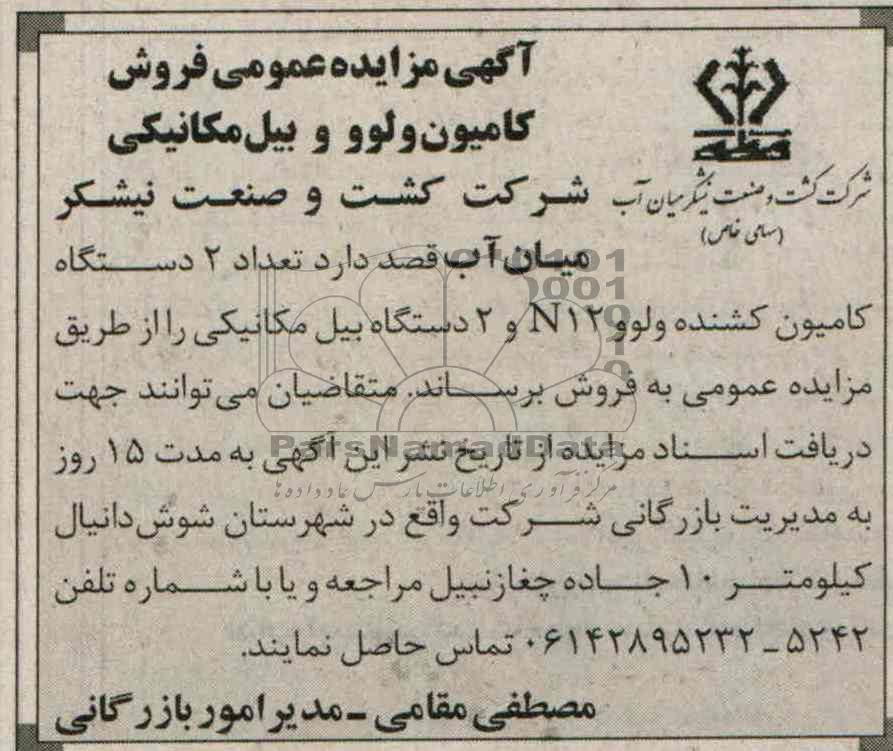 آگهی مزایده عمومی فروش
کامیون ولوو و بیل مکانیکی
شرکت کشت و صنعت نیشکر میان آب
(سهامی خاص)
شرکت کشت و صنعت نیشکر
میان آب قصد دارد تعداد ۲ دستگاه
کامیون کشنده ولوو N۱۲ و ۲ دستگاه بیل مکانیکی را از طریق
مزایده عمومی به فروش برساند. متقاضیان می‌توانند جهت
دریافت اسناد مزایده از تاریخ نشر این آگهی به مدت ۱۵ روز
به مدیریت بازرگانی شرکت واقع در شهرستان شوش دانیال
کیلومتر ۱۰ جاده چغازنبیل مراجعه و یا با شماره تلفن
۵۲۴۲ ـ ۰۶۱۴۲۸۹۵۲۳۲ تماس حاصل نمایند.
مصطفی مقامی ـ مدیر امور بازرگانی
ParsNamadData
مرکز فرآوری اطلاعات پارس نماد داده ها